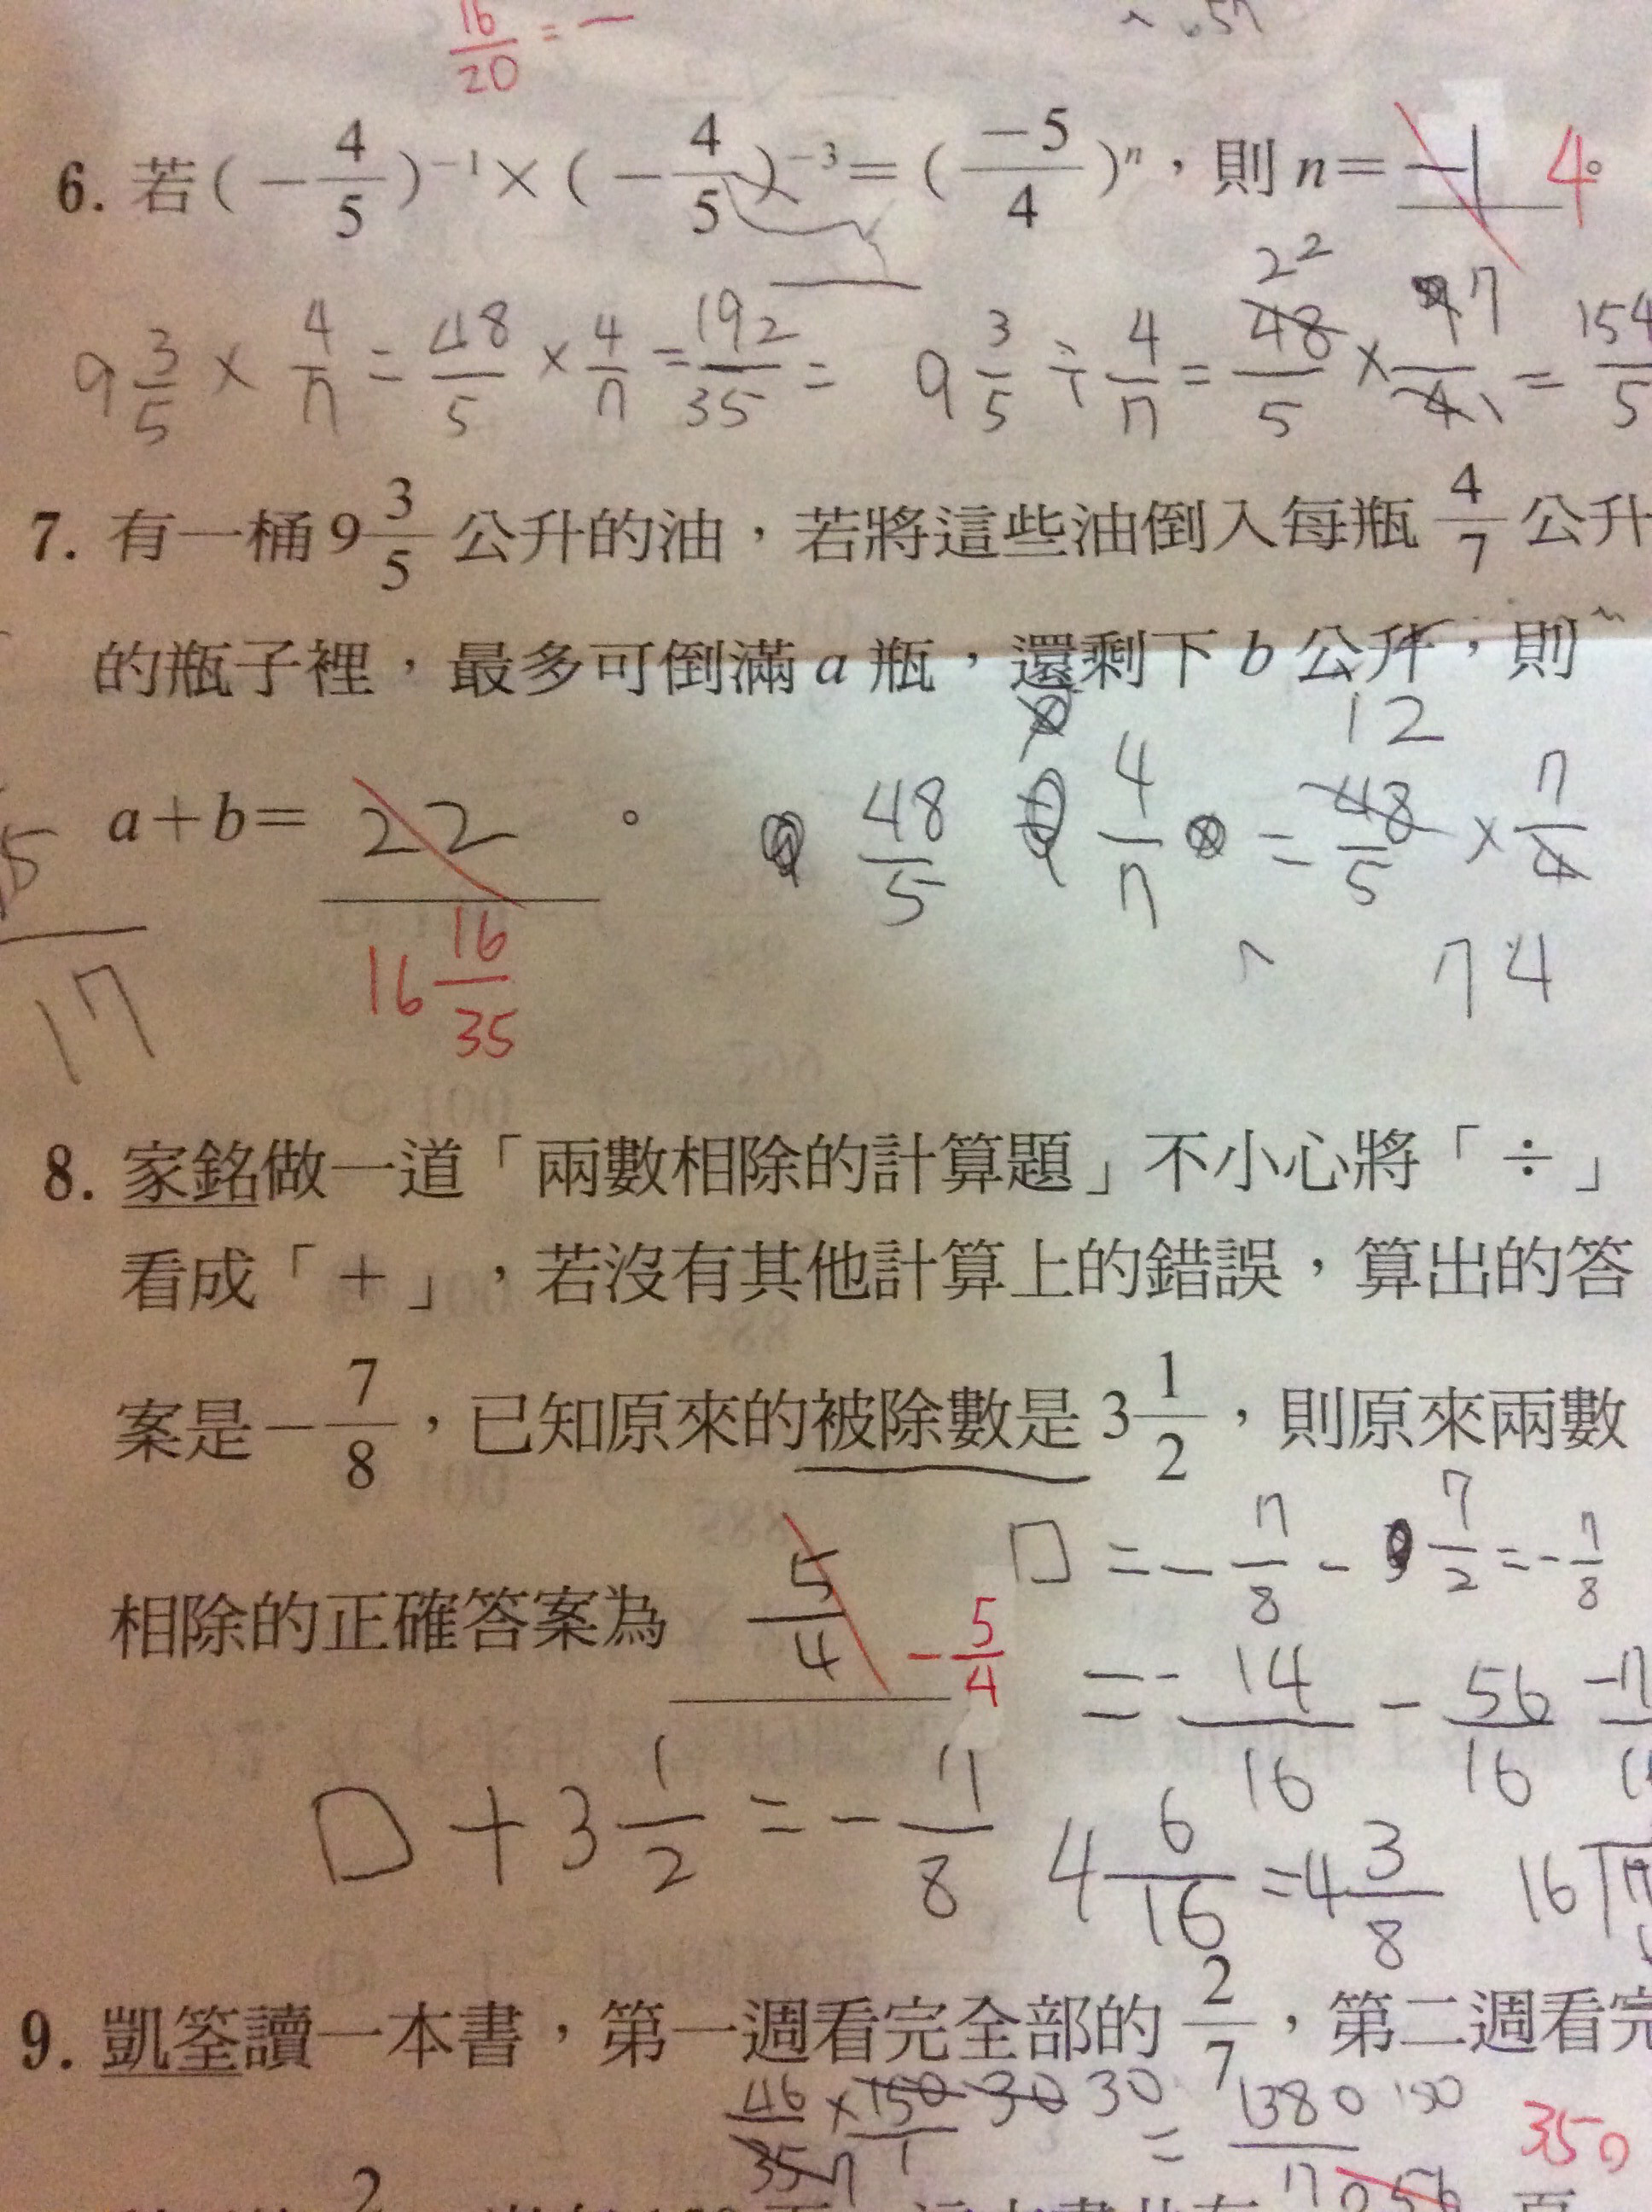 16/20 = —
6. 若(－4/5)^－1×(－4/5)^－3＝(－5/4)^n，則 n＝ －1 4。
9 3/5 × 4/7 = 48/5 × 4/7 = 192/35 =
9 3/5 ÷ 4/7 = 48/5 × 7/4 = 154/5
22
7. 有一桶 9 3/5 公升的油，若將這些油倒入每瓶 4/7 公升
的瓶子裡，最多可倒滿 a 瓶，還剩下 b 公升，則
a＋b＝ 22 。
16 16/35
48/5 4/7 = 48/5 × 7/4
12
74
17
8. 家銘做一道「兩數相除的計算題」不小心將「÷」
看成「＋」，若沒有其他計算上的錯誤，算出的答
案是－7/8，已知原來的被除數是 3 1/2，則原來兩數
□ = - 7/8 - 7/2 = - 7/8
相除的正確答案為 5/4 - 5/4
= - 14/16 - 56/16
□ + 3 1/2 = - 7/8
4 6/16 = 4 3/8 16
9. 凱筌讀一本書，第一週看完全部的 2/7，第二週看完
46/35 × 150/1 30 30 = 1380
350